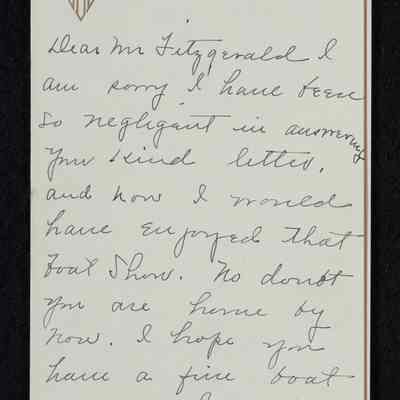 Dear Mr Fitzgerald I
am sorry I have been
so negligent in answering
your kind letter.
and how I would
have enjoyed that
boat show. No doubt
you are home by
now. I hope you
have a fine boat